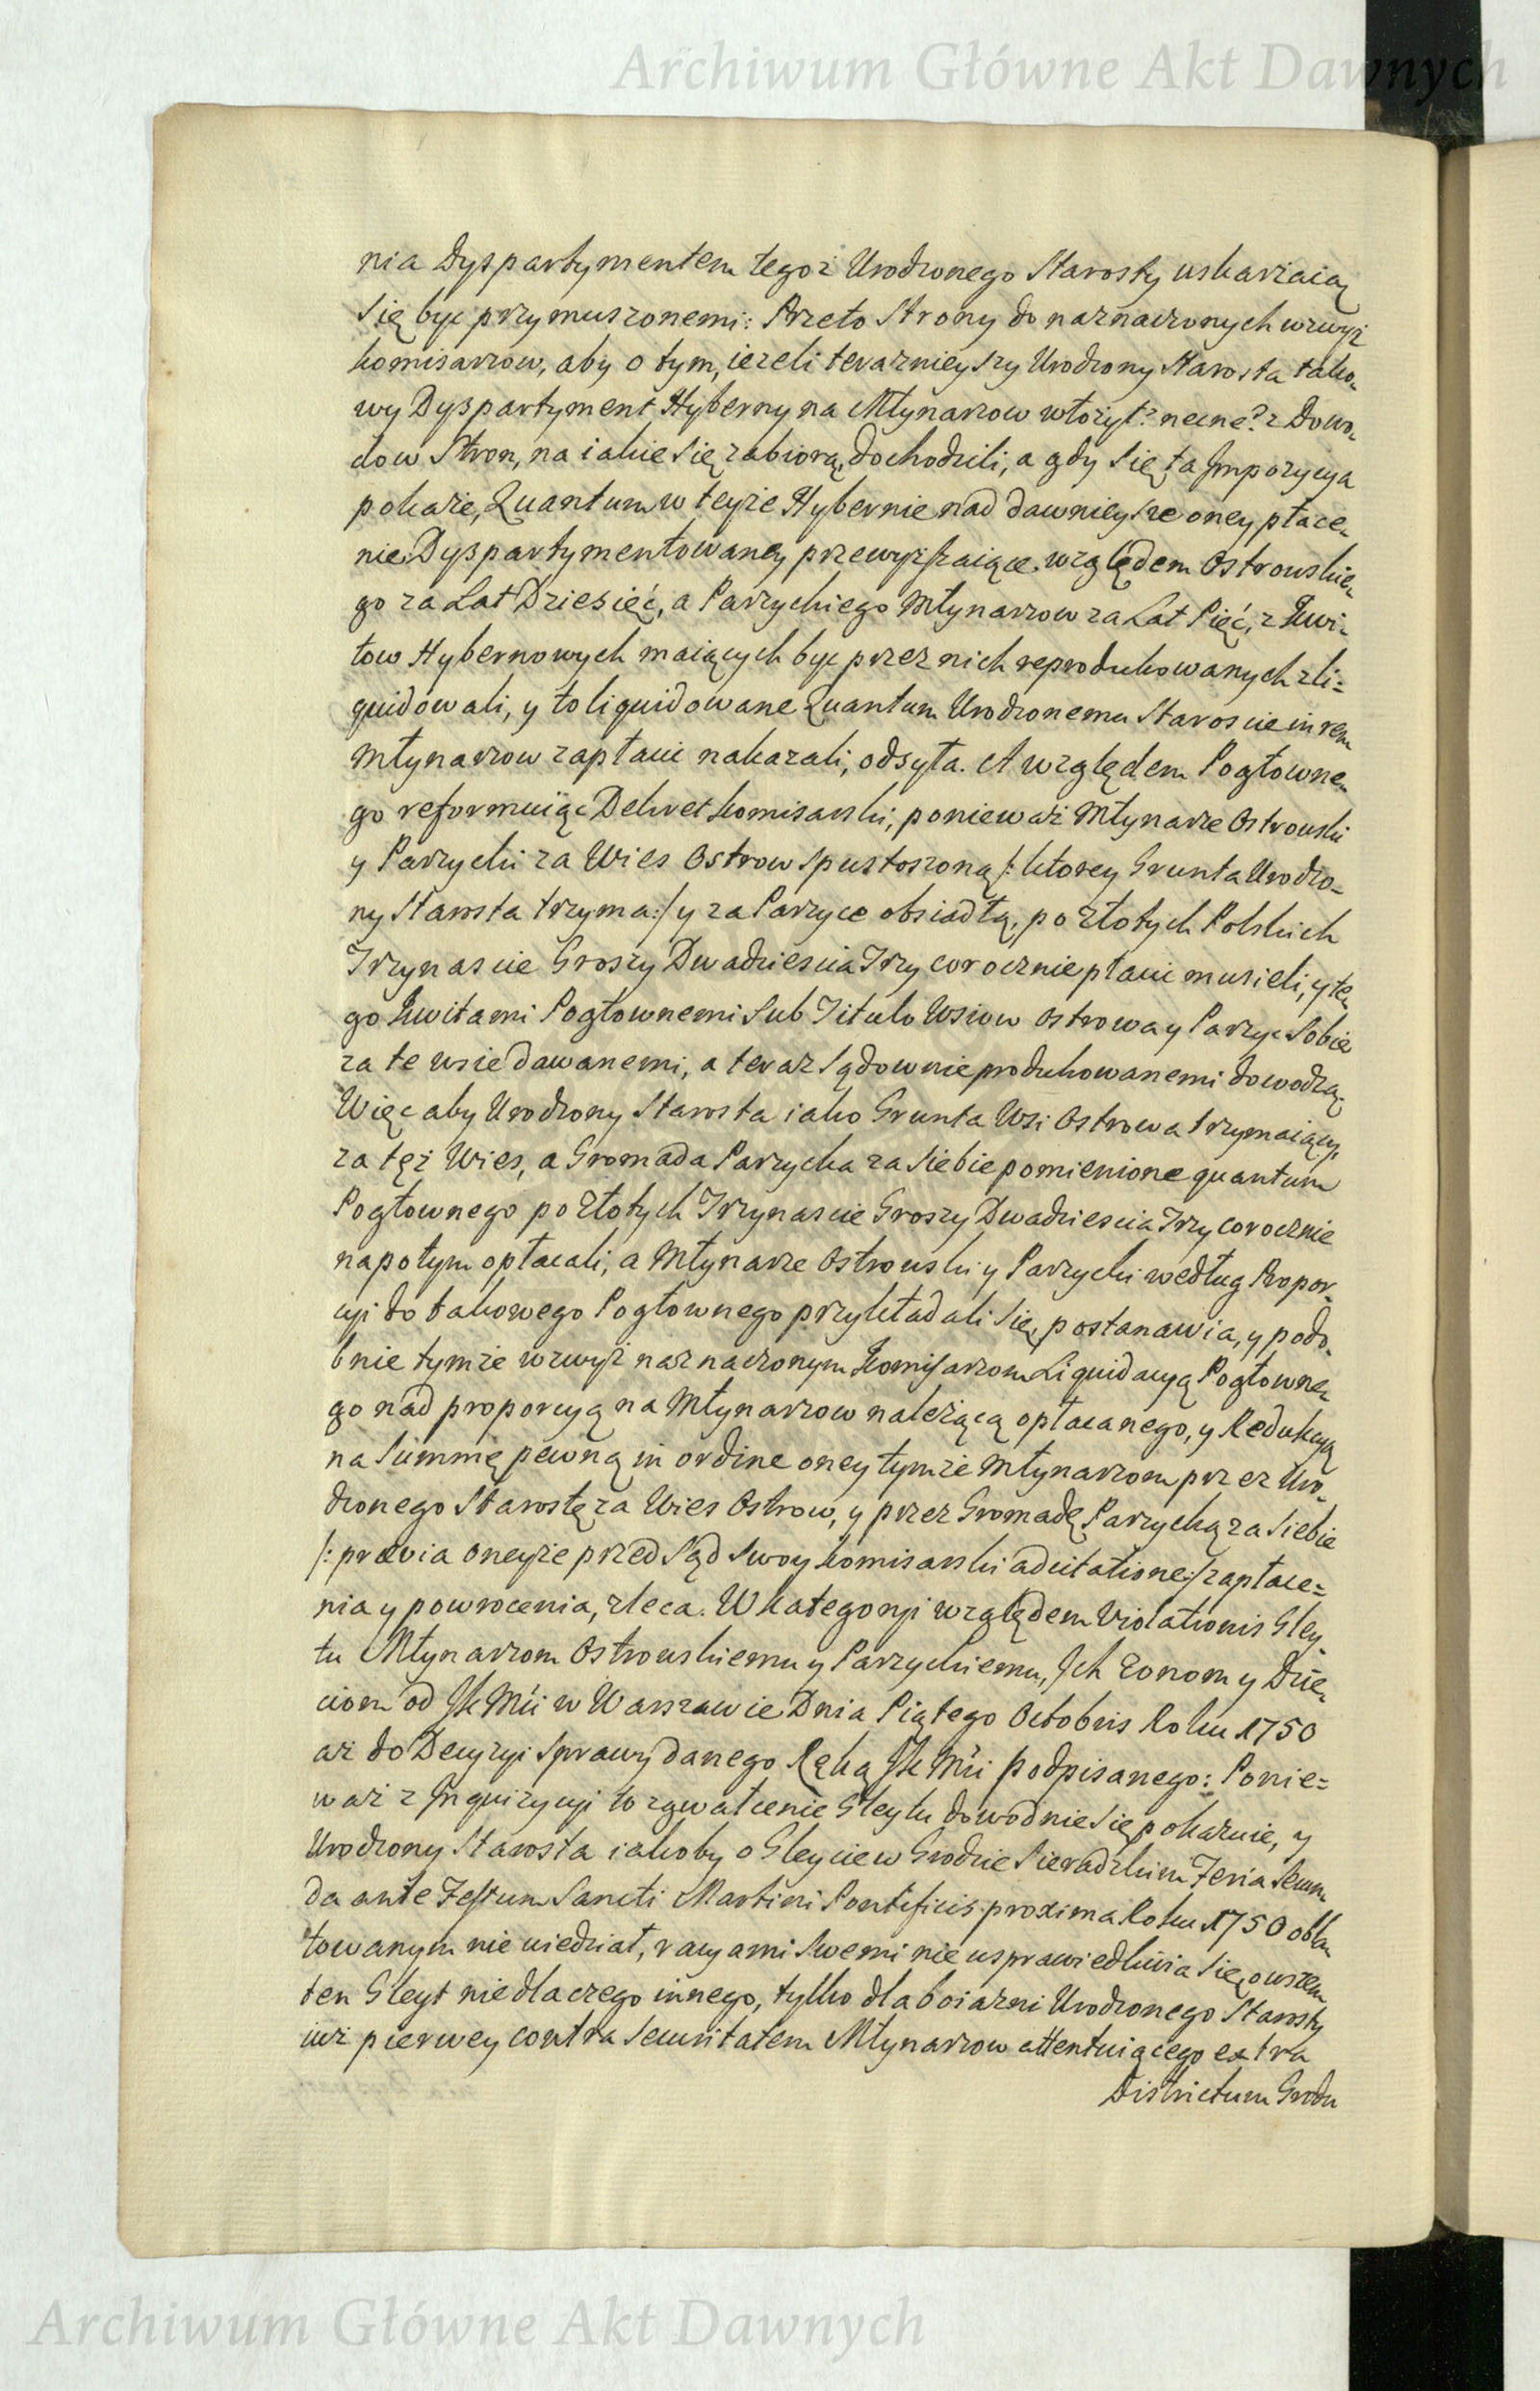 Archiwum Główne Akt Dawnych
nia Dyspartymentem tegoż Urodzonego Starosty uskarżaią
się być przymuszonemi: Przeto Strony do naznaczonych wzwyż
Komisarzow, aby o tym, ieżeli teraznieyszy Urodzony Starosta tako-
wy Dyspartyment Hyberny na Młynarzow włożył? necne? z Dowo-
dow Stron, na iakie się zabiorą, dochodzili, a gdy się ta Impozycya
pokaże, Quantum w teyże Hybernie nad dawnieysze oney płace-
nie Dyspartymentowaney przewyższaiące, względem Ostrowskie-
go za Lat Dziesięć, a Parzyckiego Młynarzow za Lat Pięć, z Kwi-
tow Hybernowych maiących być przez nich reprodukowanych zli=
quidowali, y to liquidowane Quantum Urodzonemu Staroscie in rem
Młynarzow zapłacić nakazali, odsyła. A względem Pogłowne-
go reformuiąc Dekret Komisarski, ponieważ Młynarze Ostrowski
y Parzycki za Wies Ostrow spustoszoną /: ktorey Grunta Urodzo-
ny Starosta trzyma :/ y za Parzyce obsiadłą, po Złotych Polskich
Trzynascie Groszy Dwadziescia Trzy corocznie płacić musieli, y te-
go Kwitami Pogłownemi Sub Titulo Wsiow Ostrowa y Parzyc Sobie
za te wsie dawanemi, a teraz Sądownie produkowanemi dowodzą,
Więc aby Urodzony Starosta iako Grunta Wsi Ostrowa trzymaiący,
za tęż Wies, a Gromada Parzycka za siebie pomienione quantum
Pogłownego po Złotych Trzynascie Groszy Dwadziescia Trzy corocznie
napotym opłacali, a Młynarze Ostrowski y Parzycki według Propor-
cyi do takowego Pogłownego przykładali się, postanawia, y podo-
bnie tymże wzwyż naznaczonym Komisarzom Liquidacyą Pogłowne-
go nad proporcyą na Młynarzow należącą opłacanego, y Redukcyą
na Summę pewną in ordine oney tymże Młynarzom przez Uro-
dzonego Starostę za Wies Ostrow, y przez Gromadę Parzycką za siebie
/: prævia oneyże przed Sąd Swoy Komisarski adcitatione :/ zapłace=
nia y powrocenia, zleca. W kategoryi względem Violationis Gley-
tu Młynarzom Ostrowskiemu y Parzyckiemu, Ich Zonom y Dzie-
ciom od JK Mći w Warszawie Dnia Piątego Octobris Roku 1750
aż do Decyzyi Sprawy danego Ręką JK Mći podpisanego: Ponie=
waż z Inquizycyi to zgwałcenie Gleytu dowodnie się pokazuie, y
Urodzony Starosta iakoby o Gleycie w Grodzie Sieradzkim Feria Secun-
da ante Festum Sancti Martini Pontificis proxima Roku 1750 obla-
towanym nie wiedział, racyami swemi nie usprawiedliwia się, owszem
ten Gleyt nie dla czego innego, tylko dla boiazni Urodzonego Starosty
iuż pierwey contra Securitatem Młynarzow attentuiącego extra
Districtum Grodu
Archiwum Główne Akt Dawnych